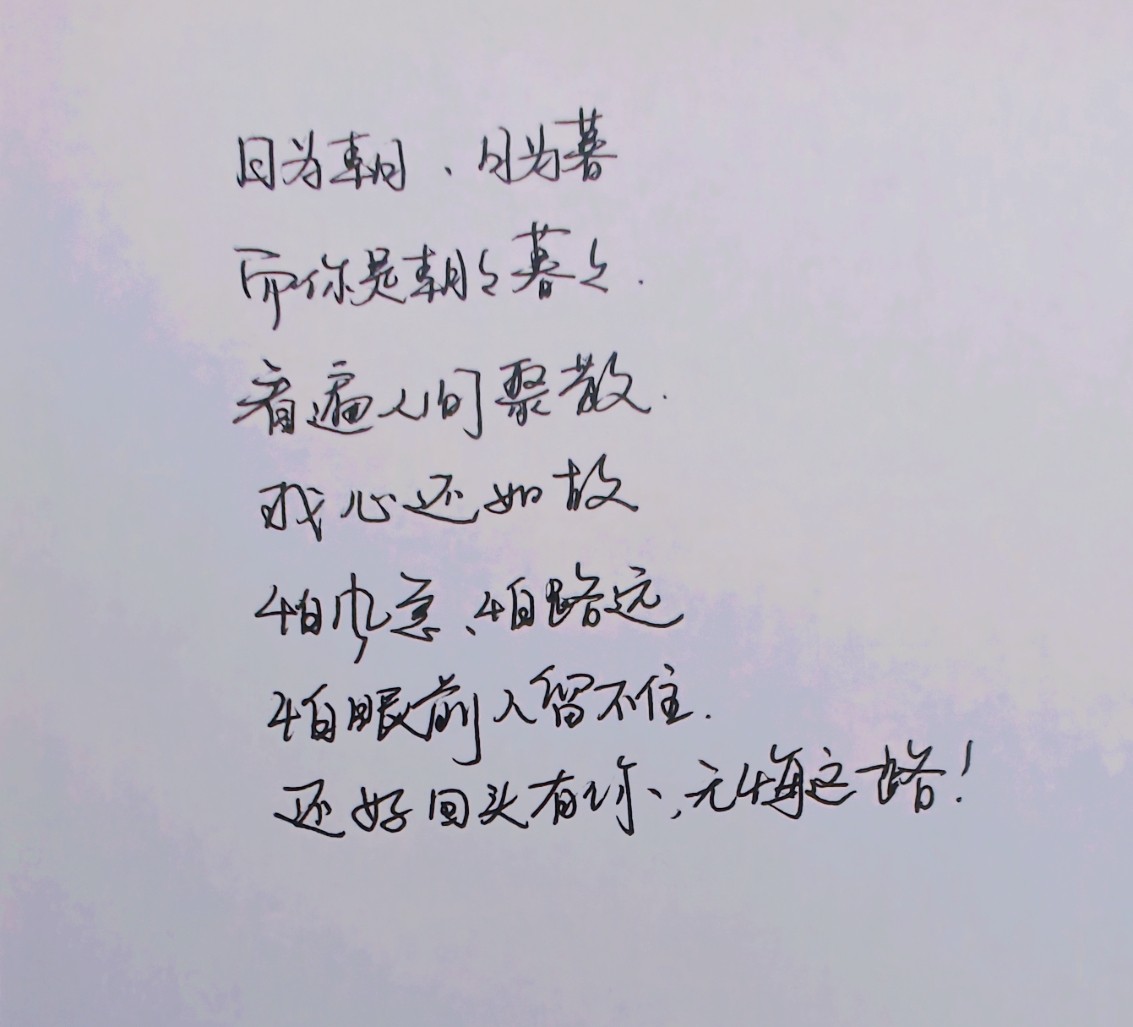 日为朝、月为暮
而你是朝朝暮暮.
看遍人间聚散.
我心还如故
怕风急、怕路远
怕眼前人留不住.
还好回头有你、无悔这路!